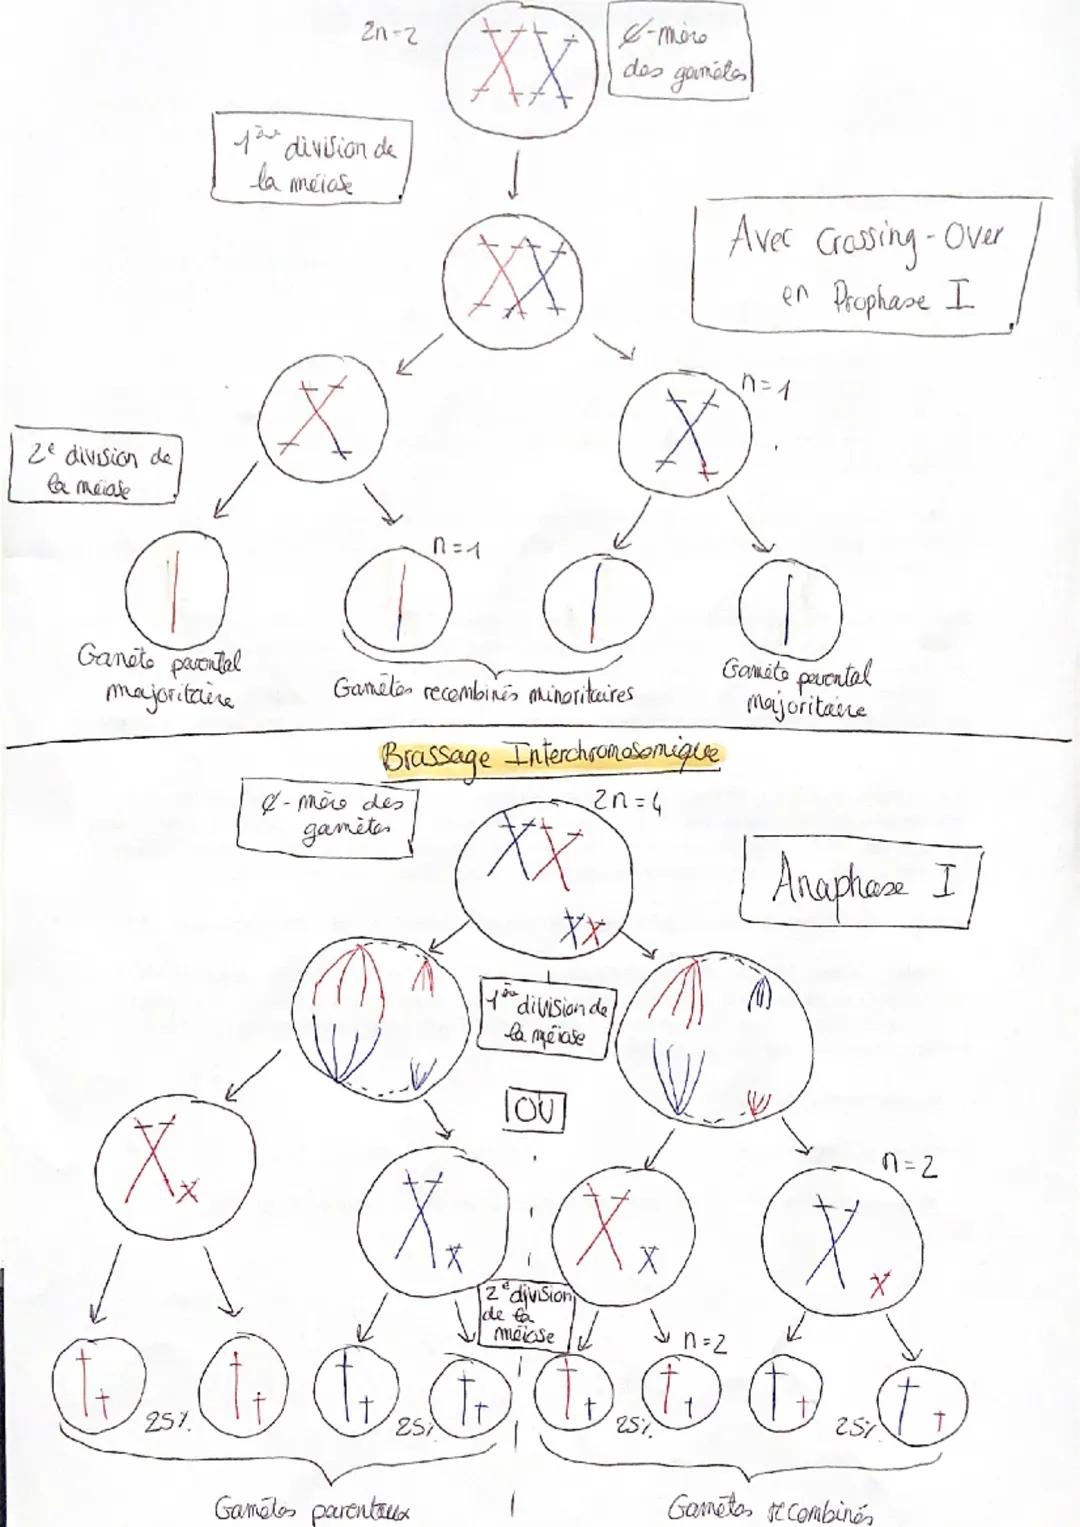 2n=2
¢-mère
des gamètes
1ère division de
la méiose
Avec Crossing-Over
en Prophase I
n=1
2e division de
la méiose
n=1
Gamète parental
majoritaire
Gamètes recombinés minoritaires
Gamète parental
majoritaire
Brassage Interchromosomique
¢-mère des
gamètes
2n=4
Anaphase I
1ère division de
la méiose
OU
n=2
2e division
de la
méiose
n=2
25%
25%
25%
25%
Gamètes parentaux
Gamètes recombinés